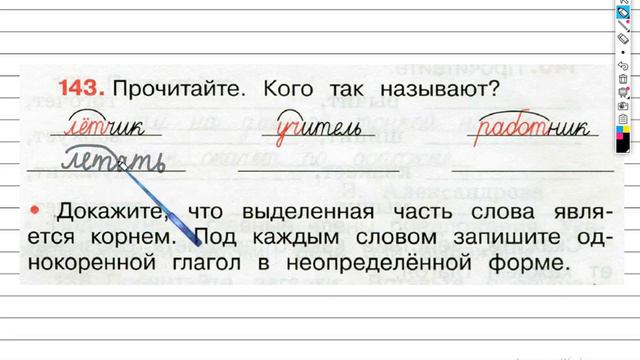 143. Прочитайте. Кого так называют?
лётчик учитель работник
летать
• Докажите, что выделенная часть слова явля-
ется корнем. Под каждым словом запишите од-
нокоренной глагол в неопределённой форме.